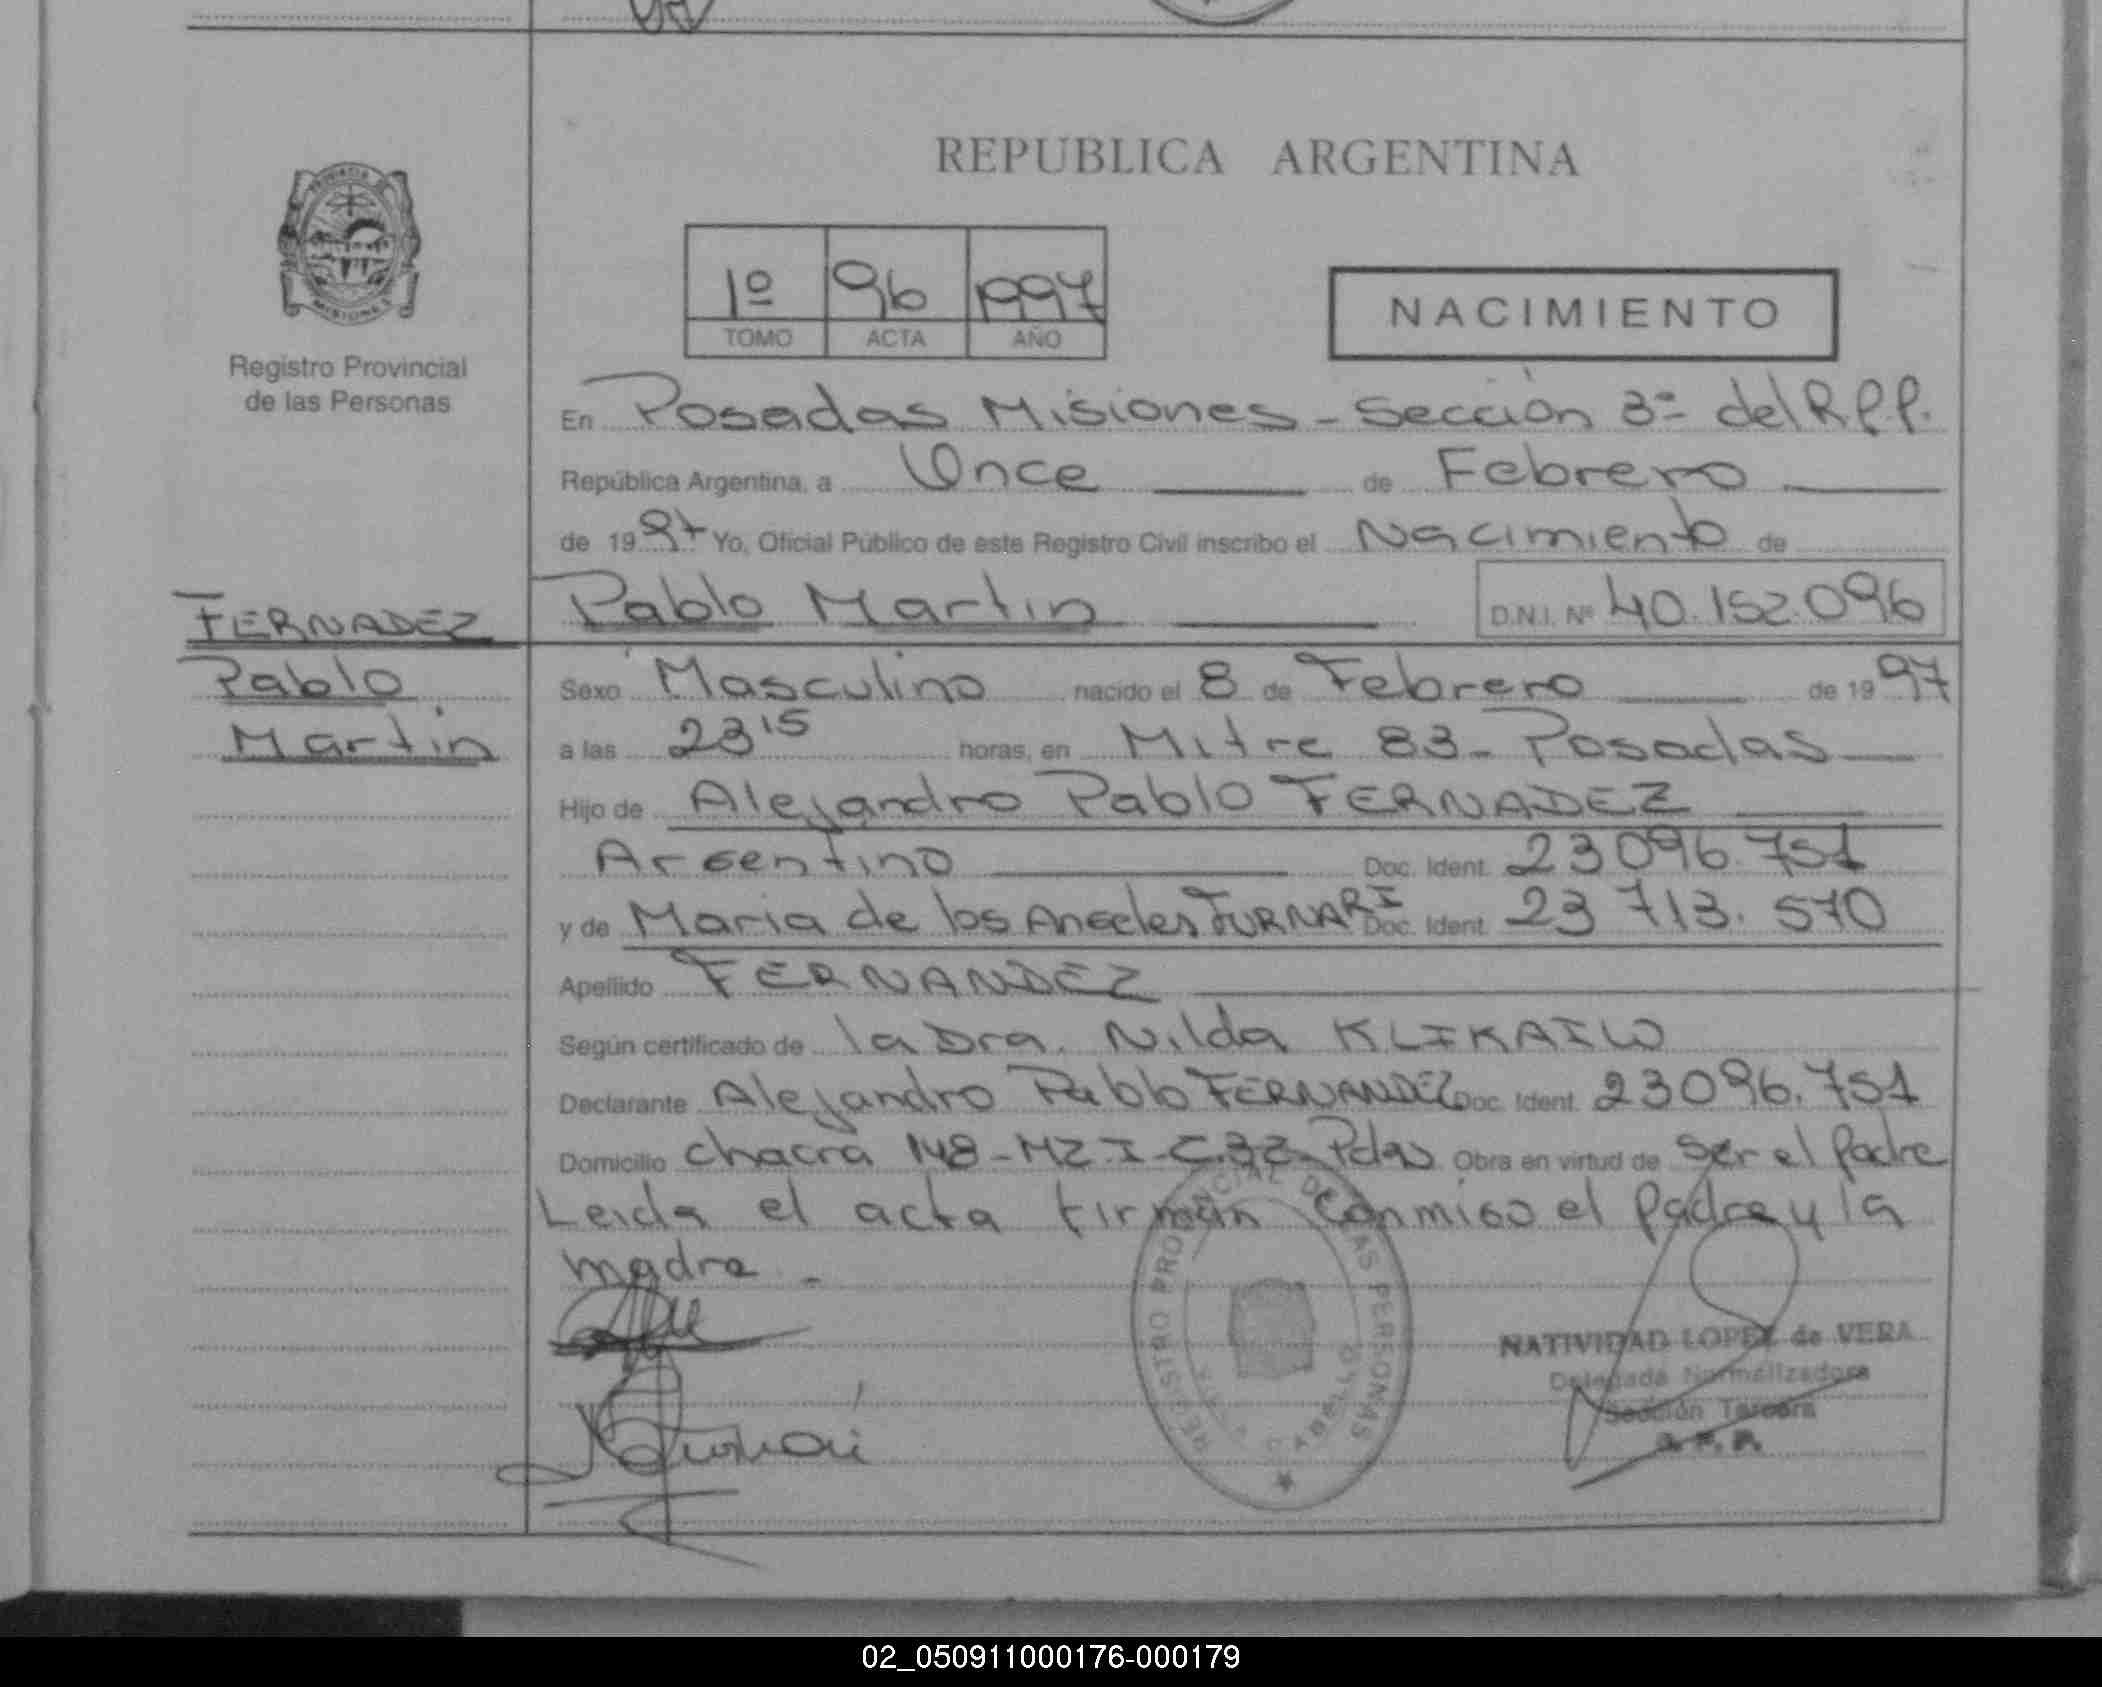 REPUBLICA ARGENTINA
1º 96 1997
TOMO ACTA AÑO
NACIMIENTO
PROVINCIA DE
MISIONES
Registro Provincial
de las Personas
En Posadas Misiones - Sección 3ª del R.P.P.
República Argentina, a Once de Febrero
de 1997 Yo, Oficial Público de este Registro Civil inscribo el Nacimiento de
Pablo Martin D.N.I. Nº 40.152.096
FERNADEZ
Pablo
Martin
Sexo Masculino nacido el 8 de Febrero de 1997
a las 23 15 horas, en Mitre 83 - Posadas
Hijo de Alejandro Pablo FERNADEZ
Argentino Doc. Ident. 23 096.751
y de Maria de los Angeles FURNARI Doc. Ident. 23 713.570
Apellido FERNANDEZ
Según certificado de la Dra. Nilda KLIKAILO
Declarante Alejandro Pablo FERNANDEZ Doc. Ident. 23 096.751
Domicilio chacra 148 - MZ I - C.32 - Pdas Obra en virtud de ser el Padre
Leida el acta firman conmigo el padre y la
madre -
REGISTRO PROVINCIAL DE LAS PERSONAS
NATIVIDAD LOPEZ de VERA
Delegada Normalizadora
Sección Tercera
R. P. P.
02_050911000176-000179